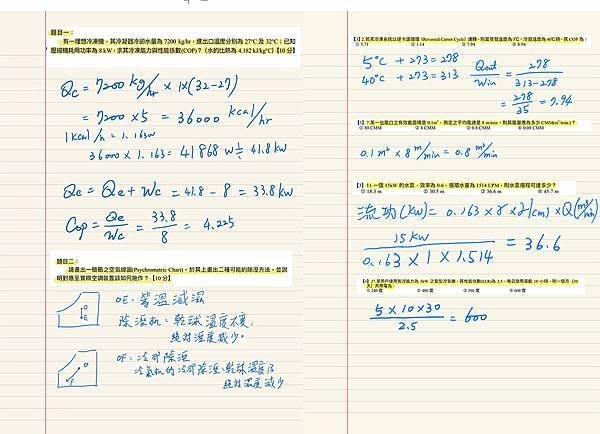 題目一：
有一理想冷凍機，其冷凝器冷卻水量為 7200 kg/hr，進出口溫度分別為 27°C 及 32°C；已知
壓縮機耗用功率為 8 kW，求其冷凍能力與性能係數(COP)？（水的比熱為 4.182 kJ/kg°C)【10 分】
Qc = 7200 kg/hr × 1×(32-27)
= 7200 × 5 = 36000 kcal/hr
1 kcal/h = 1.163w
36000 × 1.163 = 41868 w ≒ 41.8 kw
Qc = Qe + Wc = 41.8 - 8 = 33.8 kw
Cop = Qe/Wc = 33.8/8 = 4.225
題目二：
請畫出一簡簡之空氣線圖(Psychrometric Chart)，於其上畫出二種可能的除溼方法，並說
明對應至實際空調裝置該如何施作？【10 分】
O
E
OE：等溫減濕
除濕機、乾球溫度不變，
絕對溼度減少。
O
F
OF：冷卻除濕
冷氣機的冷卻除濕、乾球溫度及
絕對濕度減少
【1】2.若某冷凍系統以逆卡諾循環（Reversed Carnot Cycle）運轉，則當蒸發溫度為 5℃，冷凝溫度為 40℃時，其 COP 為：
① 5.71 ② 1.14 ③ 7.94 ④ 8.94
5°C + 273 = 278
40°C + 273 = 313
Qout/Win = 278/313-278
= 278/35 = 7.94
7.某一出風口之有效截面積是 0.1m²，測定之平均風速是 8 m/min，則其風量應為多少 CMM(m³/min.)？
① 80 CMM ② 8 CMM ③ 0.8 CMM ④ 0.08 CMM
0.1 m² × 8 m/min = 0.8 m³/min
11.一個 15kW 的水泵，效率為 0.6，循環水量為 1514 LPM，則水泵揚程可達多少？
① 18.3 m ② 30.5 m ③ 36.6 m ④ 45.7 m
(kw) = 0.163 × r × H(m) × Q(m³/min)
15 kw / 0.163 × 1 × 1.514 = 36.6
① 240 度 ② 480 度 ③ 500 度 ④ 600 度
5 × 10 × 30 / 2.5 = 600